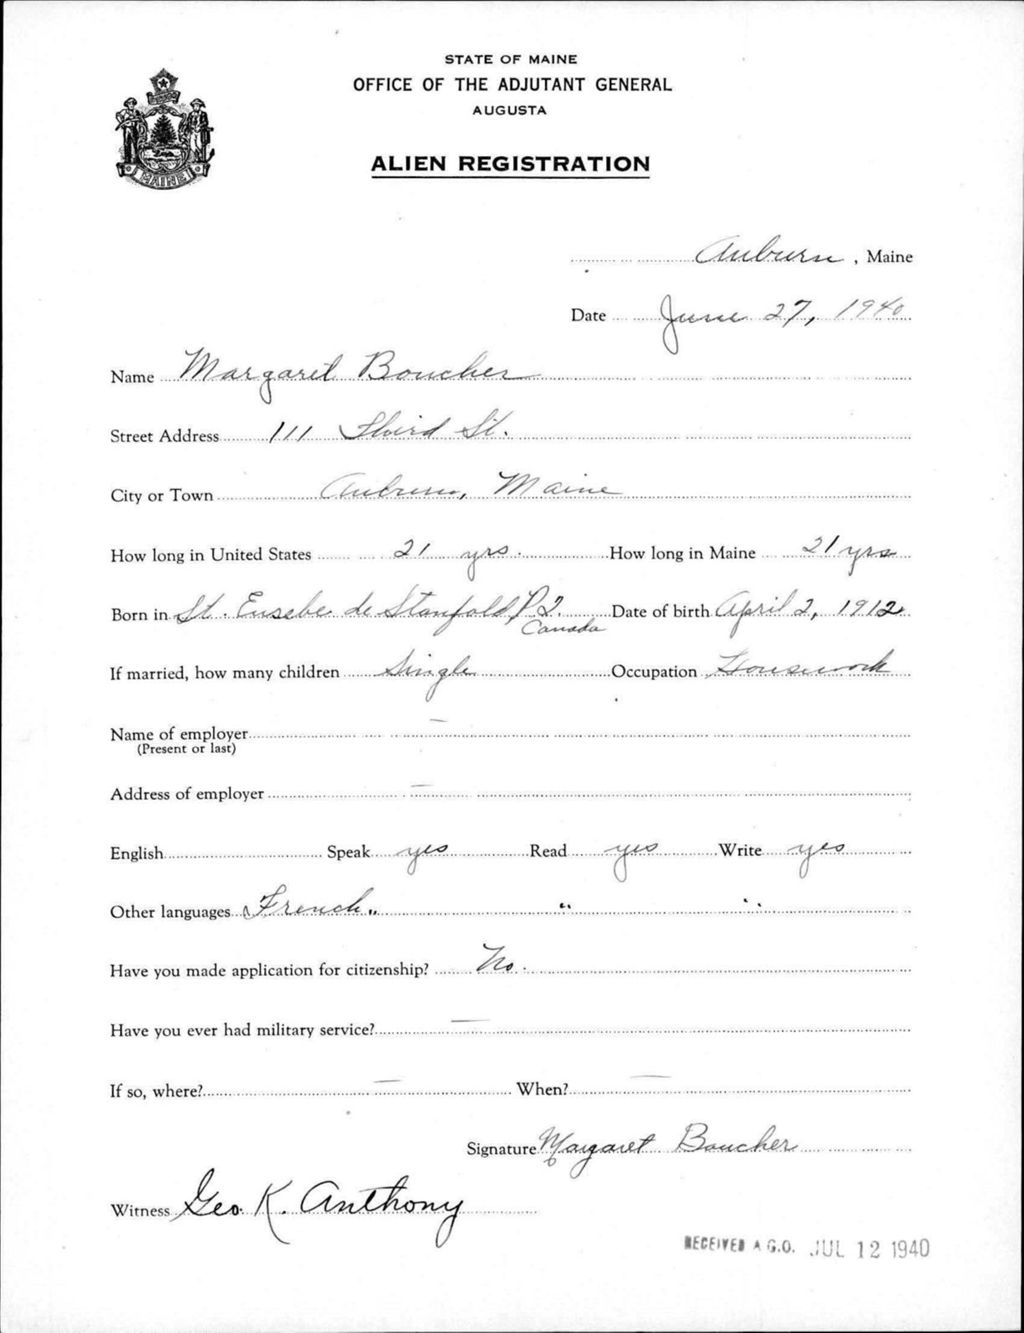 STATE OF MAINE
OFFICE OF THE ADJUTANT GENERAL
AUGUSTA
ALIEN REGISTRATION
MAINE
Auburn, Maine
Date June 27, 1940
Name Margaret Boucher
Street Address 111 Third St.
City or Town Auburn, Maine
How long in United States 21 yrs. How long in Maine 21 yrs
Born in St. Eusebe de Stanfold, P.Q. Canada Date of birth April 2, 1912
If married, how many children Single Occupation Housework
Name of employer —
(Present or last)
Address of employer —
English Speak yes Read yes Write yes
Other languages French " " "
Have you made application for citizenship? No.
Have you ever had military service? —
If so, where? — When? —
Signature Margaret Boucher
Witness Geo. K. Anthony
RECEIVED A.G.O. JUL 12 1940